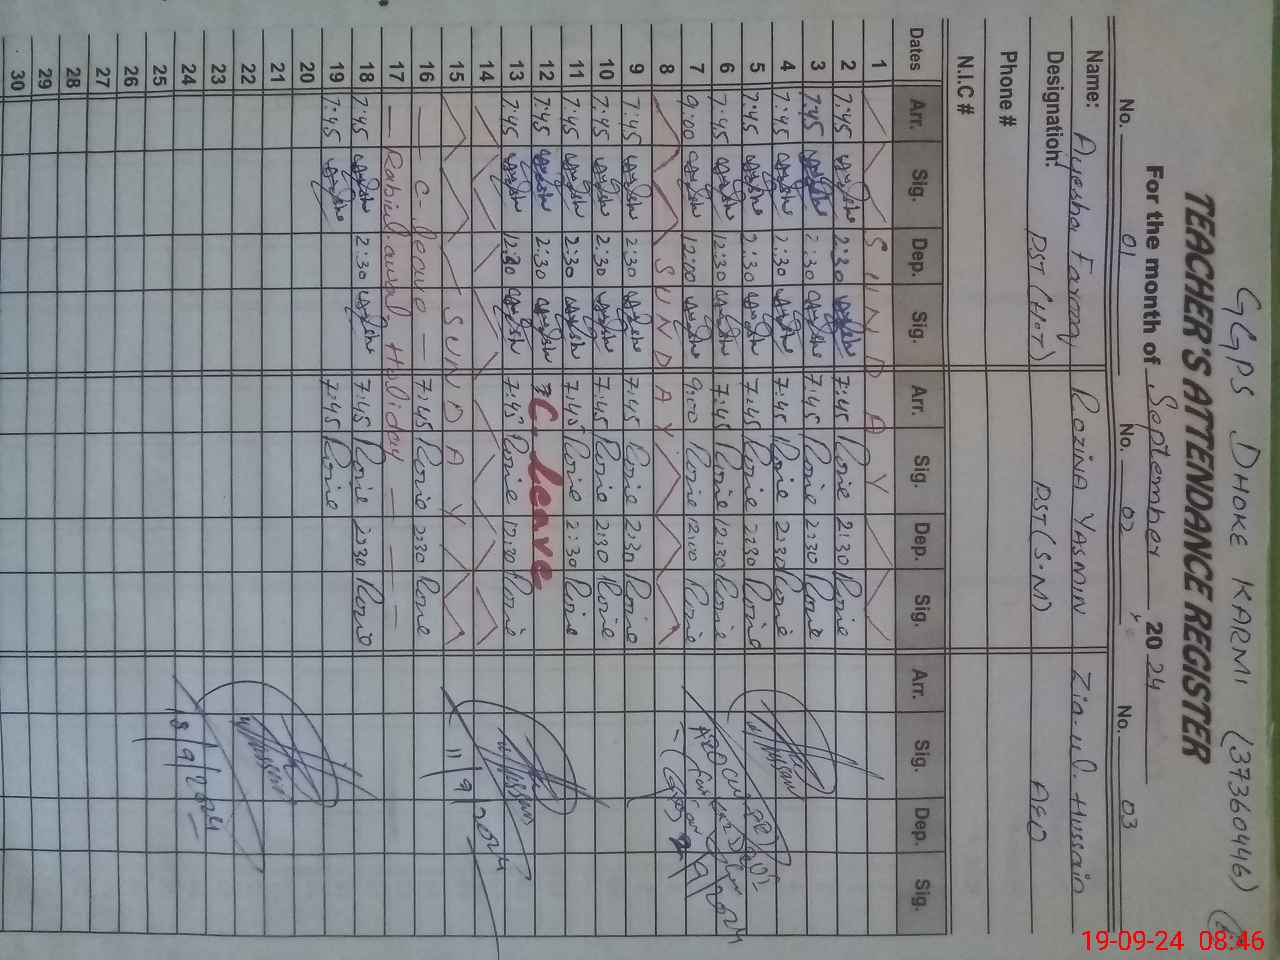 GGPS DHOKE KARMI (37360446)
TEACHER'S ATTENDANCE REGISTER
For the month of September 2024
No. 01 No. 02 No. 03
Name: Ayesha Karam Rozina Yasmin Zia-ul-Hussain
Designation: PST (H.T) PST (S.M) AEO
Phone #
N.I.C #
Dates Arr. Sig. Dep. Sig. Arr. Sig. Dep. Sig. Arr. Sig. Dep. Sig.
1 SUNDAY
2 7:45 2:30 7:45 Rozie 2:30 Rozie
3 7:45 2:30 7:45 Rozie 2:30 Rozie
4 7:45 2:30 7:45 Rozie 2:30 Rozie
5 7:45 2:30 7:45 Rozie 2:30 Rozie
6 7:45 12:30 7:45 Rozie 12:30 Rozie
7 9:00 12:00 9:00 Rozie 12:00 Rozie
8 SUNDAY
9 7:45 2:30 7:45 Rozie 2:30 Rozie
10 7:45 2:30 7:45 Rozie 2:30 Rozie
11 7:45 2:30 7:45 Rozie 2:30 Rozie
12 7:45 2:30 C. leave
13 7:45 12:30 7:45 Rozie 12:30 Rozie
14
15 SUNDAY
16 — C- leave — 7:45 Rozie 2:30 Rozie
17 — Rabi ul awal Holiday — — —
18 7:45 2:30 7:45 Rozie 2:30 Rozie
19 7:45 7:45 Rozie
20
21
22
23
24
25
26
27
28
29
30
11/9/2024
18/9/2024
19-09-24 08:46